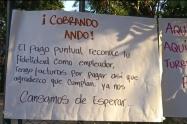 ¡ COBRANDO
ANDO !
El pago puntual, reconoce tu
fidelidad como empleador,
Tengo facturas por pagar así que
agradezco que cumplan, ya nos
Cansamos de Esperar...
AQUÍ
AQUÍ
TUR